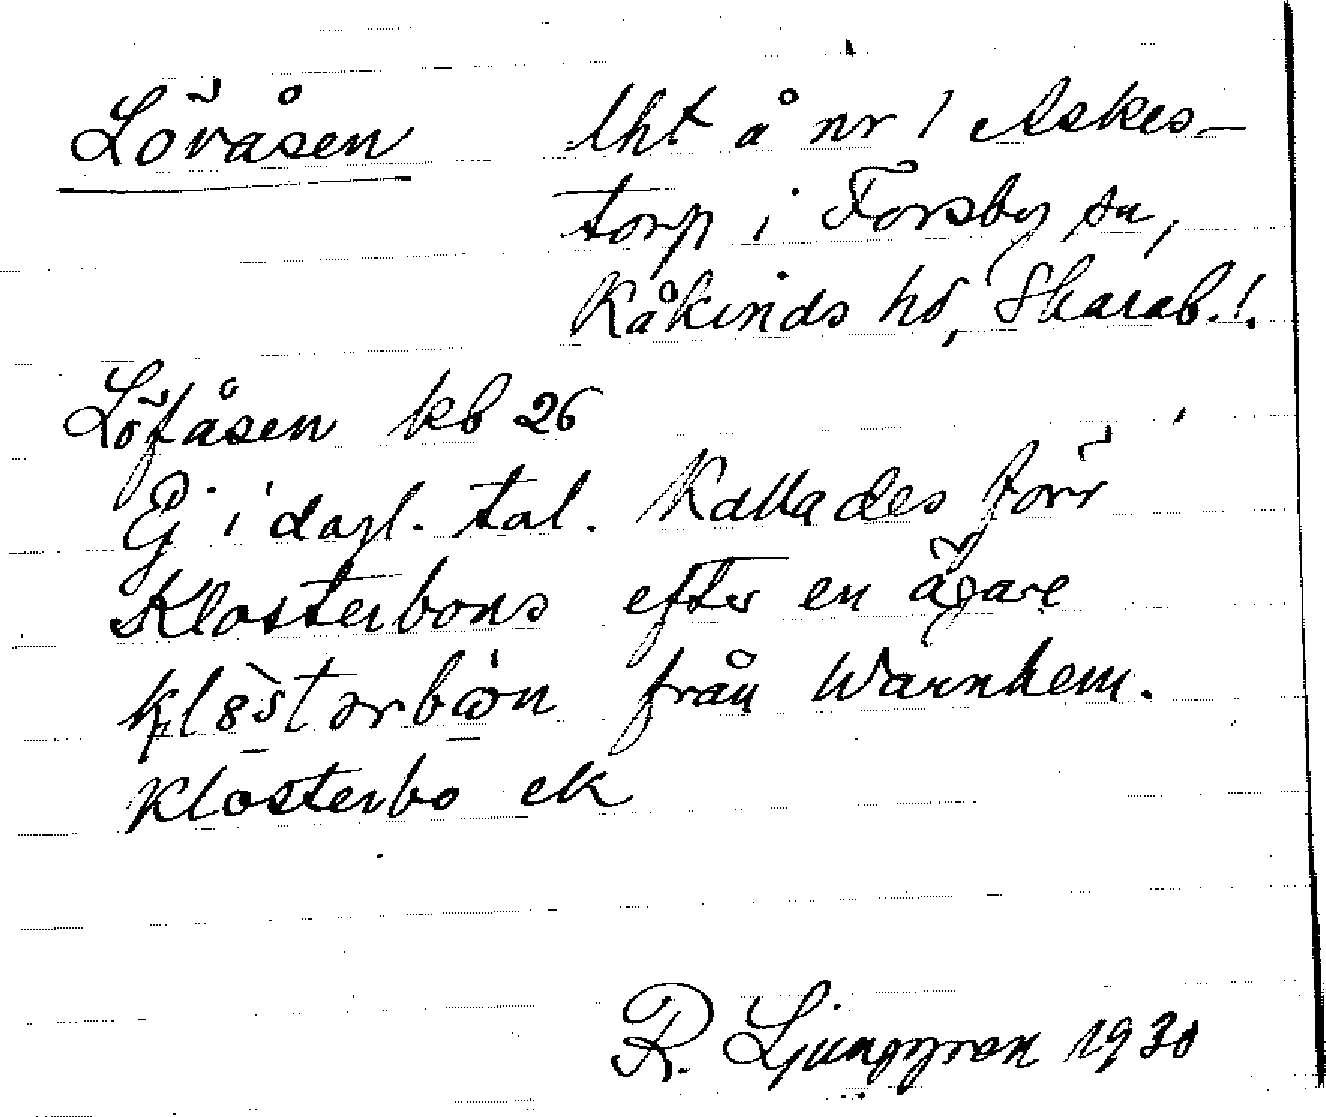 Lövåsen lht å nr 1 Askes-
torp i Forsby sn,
Kåkinds hd, Skarab. l.
Löfåsen kb 26
Ej i dagl. tal. Kallades förr
Klosterbons efter en ägare
från Warnhem.
Klosterbo ek
R. Ljunggren 1930